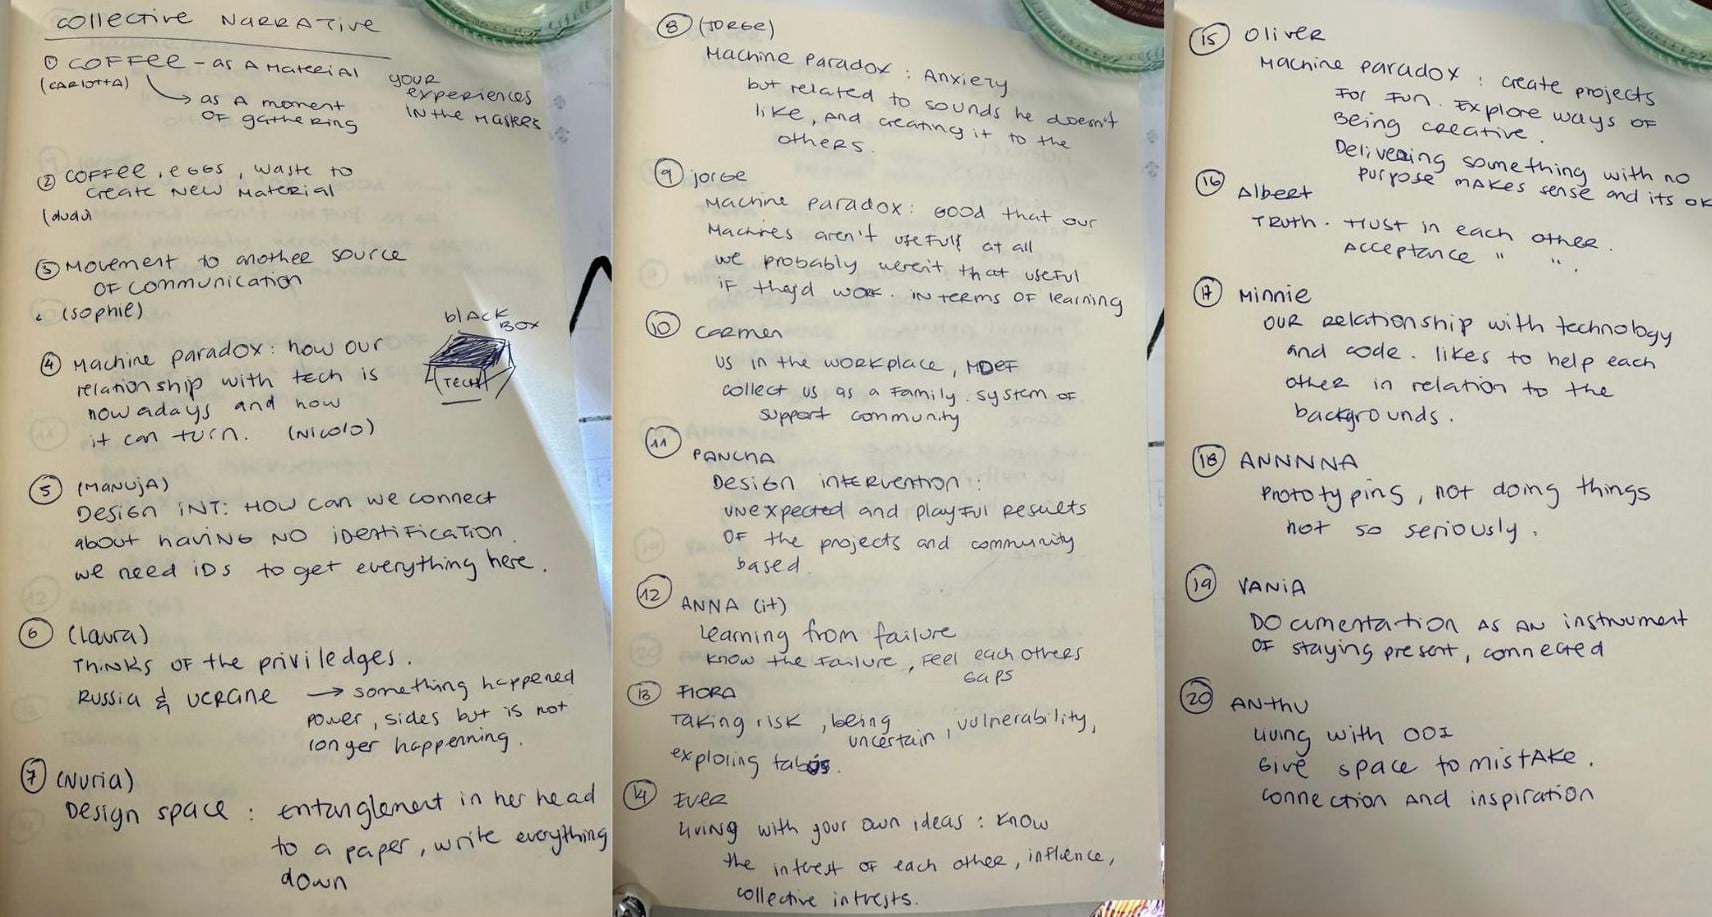 Collective NARRATIVE
① COFFEE - as A Material
(CARLOTTA)
→ as A moment
OF gathering
your
experiences
IN the Masters
② COFFEE, eGGS, waste to
create New Material
(dudu)
③ Movement to another source
OF communication
(Sophie)
④ Machine paradox: how our
relationship with tech is
nowadays and how
it can turn. (Nicolo)
blACK
BOX
(TECH)
⑤ (MANUjA)
Design INT: How can we connect
about having NO identification.
we need iDs to get everything here.
⑥ (Laura)
THINKS OF the priviledges.
Russia & Ucrane → something happened
power, sides but is not
longer happenning.
⑦ (Nuria)
Design space: entanglement in her head
to a paper, write everything
down
⑧ (JORGE)
Machine Paradox: Anxiety
but related to sounds he doesn't
like, and creating it to the
others.
⑨ jorge
Machine paradox: GOOD that our
Machines aren't usefull at all
we probably weren't that useful
if they'd work. in terms of learning
⑩ Carmen
us in the workplace, MDEF
collect us as a family. system of
support community
⑪ PANCHA
Design intervention:
unexpected and playful results
OF the projects and community
based.
⑫ ANNA (it)
Learning from failure
know the failure, feel each others
GAPS
⑬ FIORA
Taking risk, being
uncertain, vulnerability,
exploring tabús.
⑭ Ever
living with your own ideas: know
the intrest of each other, influence,
collective intrests.
⑮ Oliver
Machine paradox: create projects
For Fun. Explore ways of
Being creative.
Delivering something with no
purpose makes sense and its ok
⑯ Albert
TRUTH. trust in each other.
Acceptance " ".
⑰ Minnie
our relationship with technology
and code. likes to help each
other in relation to the
backgrounds.
⑱ ANNNNA
prototyping, not doing things
not so seriously.
⑲ VANIA
DOcumentation AS AN instrument
OF staying present, connected
⑳ ANthu
living with OOI
Give space to mistake.
connection and inspiration